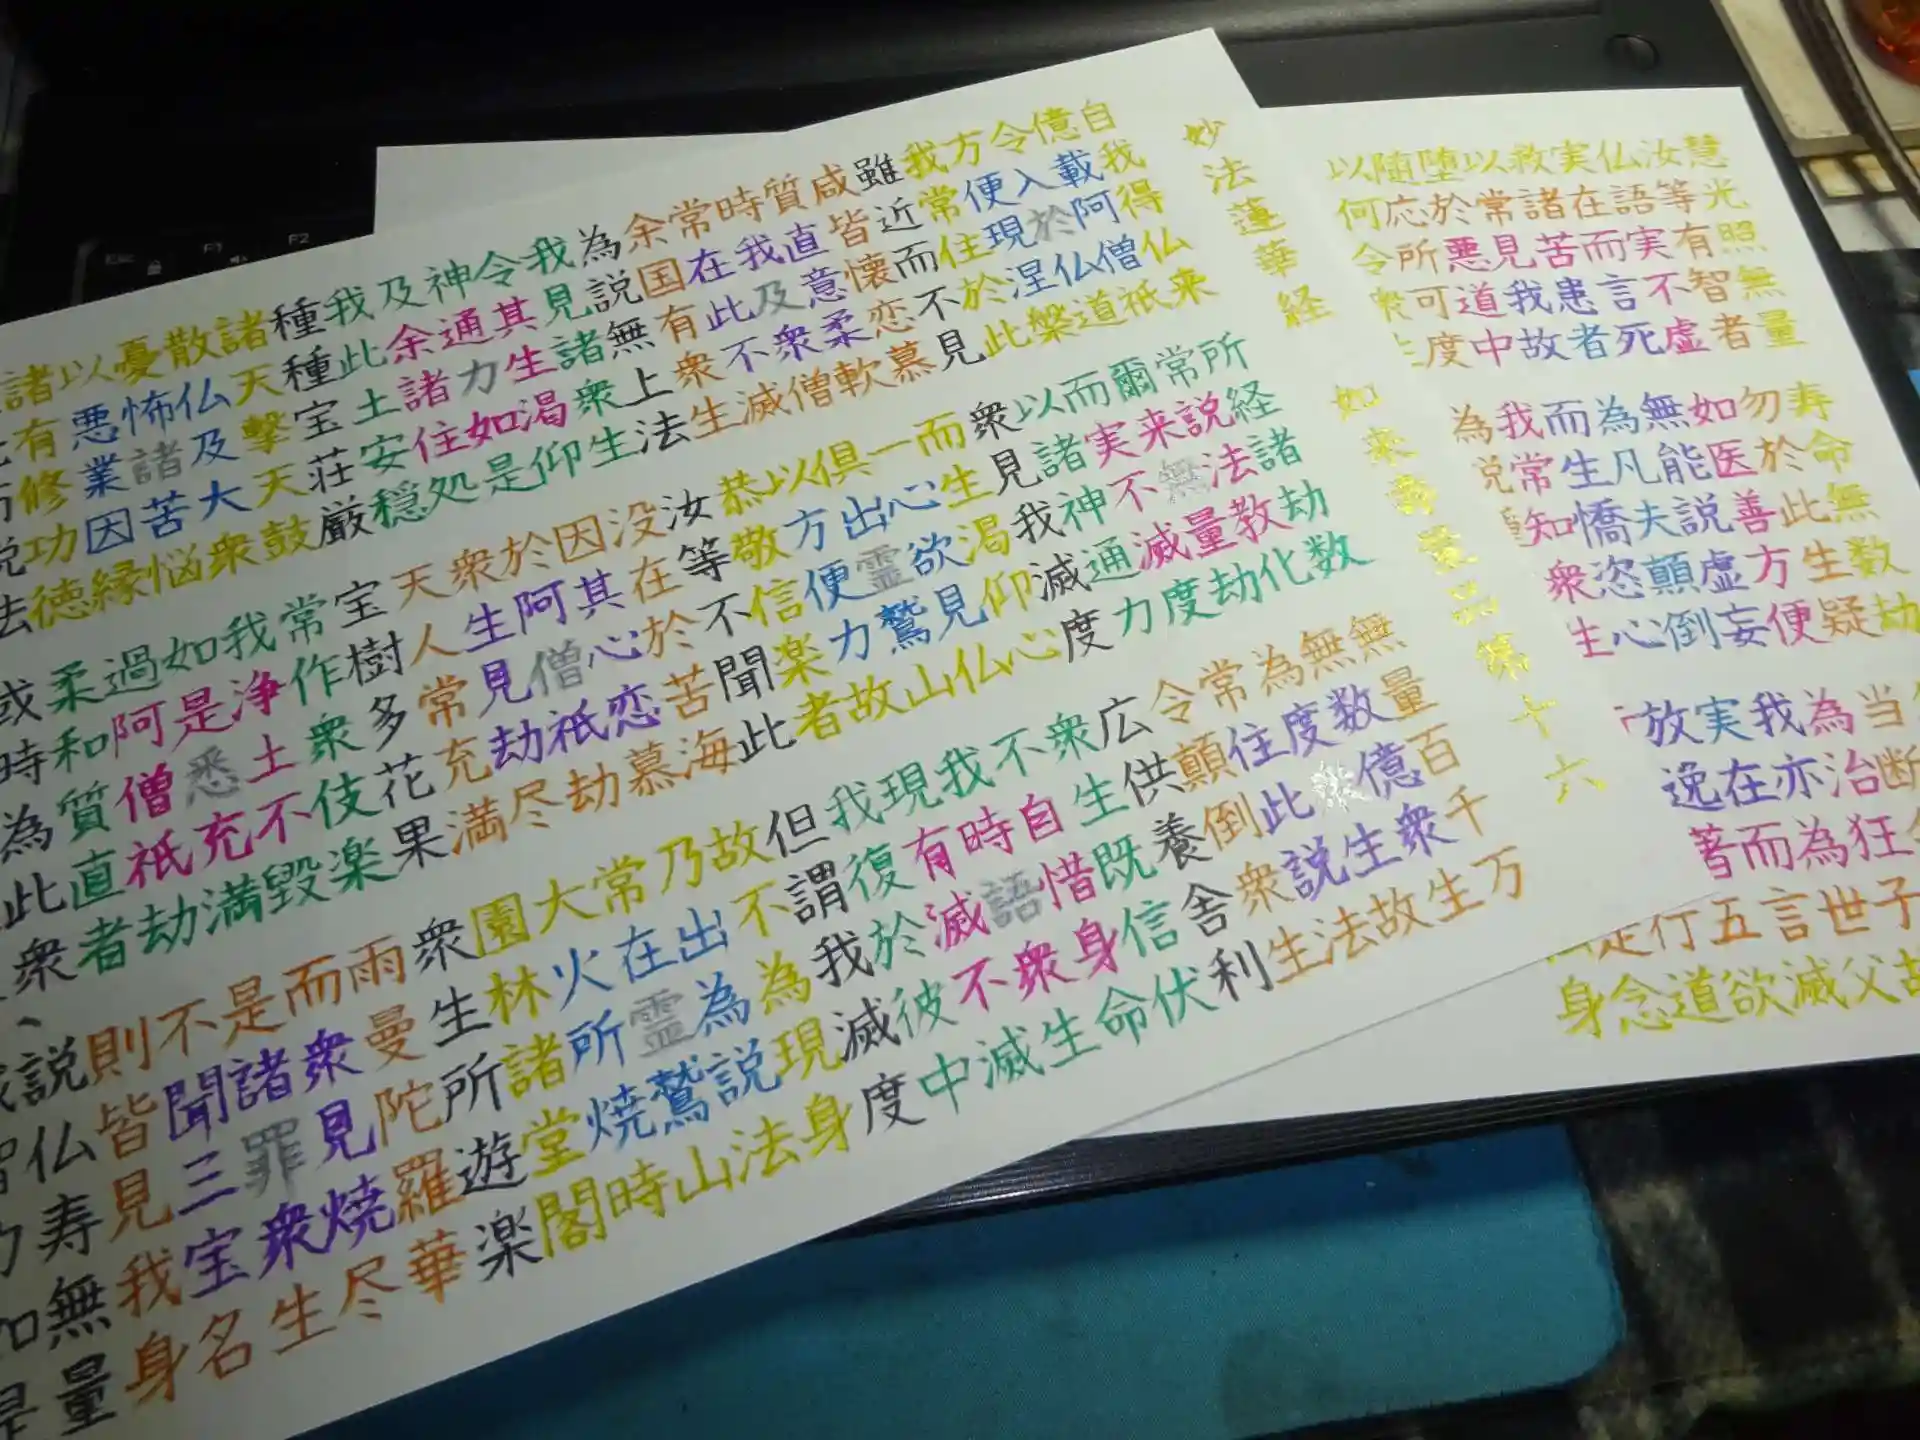 妙法蓮華経 如来壽量品第十六
自我得仏来 所経諸劫数 無量百千万
億載阿僧祇 常説法教化 無数億衆生
令入於仏道 爾来無量劫 為度衆生故
方便現涅槃 而実不滅度 常住此説法
我常住於此 以諸神通力 令顛倒衆生
雖近而不見 衆見我滅度 広供養舎利
咸皆懐恋慕 而生渇仰心 衆生既信伏
質直意柔軟 一心欲見仏 不自惜身命
時我及衆僧 倶出霊鷲山 我時語衆生
常在此不滅 以方便力故 現有滅不滅
余国有衆生 恭敬信楽者 我復於彼中
為説無上法 汝等不聞此 但謂我滅度
我見諸衆生 没在於苦海 故不為現身
令其生渇仰 因其心恋慕 乃出為説法
神通力如是 於阿僧祇劫 常在霊鷲山
及余諸住処 衆生見劫尽 大火所焼時
我此土安穏 天人常充満 園林諸堂閣
種種宝荘厳 宝樹多花果 衆生所遊楽
諸天撃天鼓 常作衆伎楽 雨曼陀羅華
散仏及大衆 我浄土不毀 而衆見焼尽
憂怖諸苦悩 如是悉充満 是諸罪衆生
以悪業因縁 過阿僧祇劫 不聞三宝名
諸有修功徳 柔和質直者 則皆見我身
説法 或時為此衆 説仏寿無量
慧光照無量 寿命無数劫
汝等有智者 勿於此生疑 当断
仏語実不虚 如医善方便 為治狂子故
実在而言死 無能説虚妄 我亦為世父
救諸苦患者 為凡夫顛倒 実在而言滅
以常見我故 而生憍恣心 放逸著五欲
堕於悪道中 我常知衆生 行道
随応所可度 為説 是念
以何令衆生 身